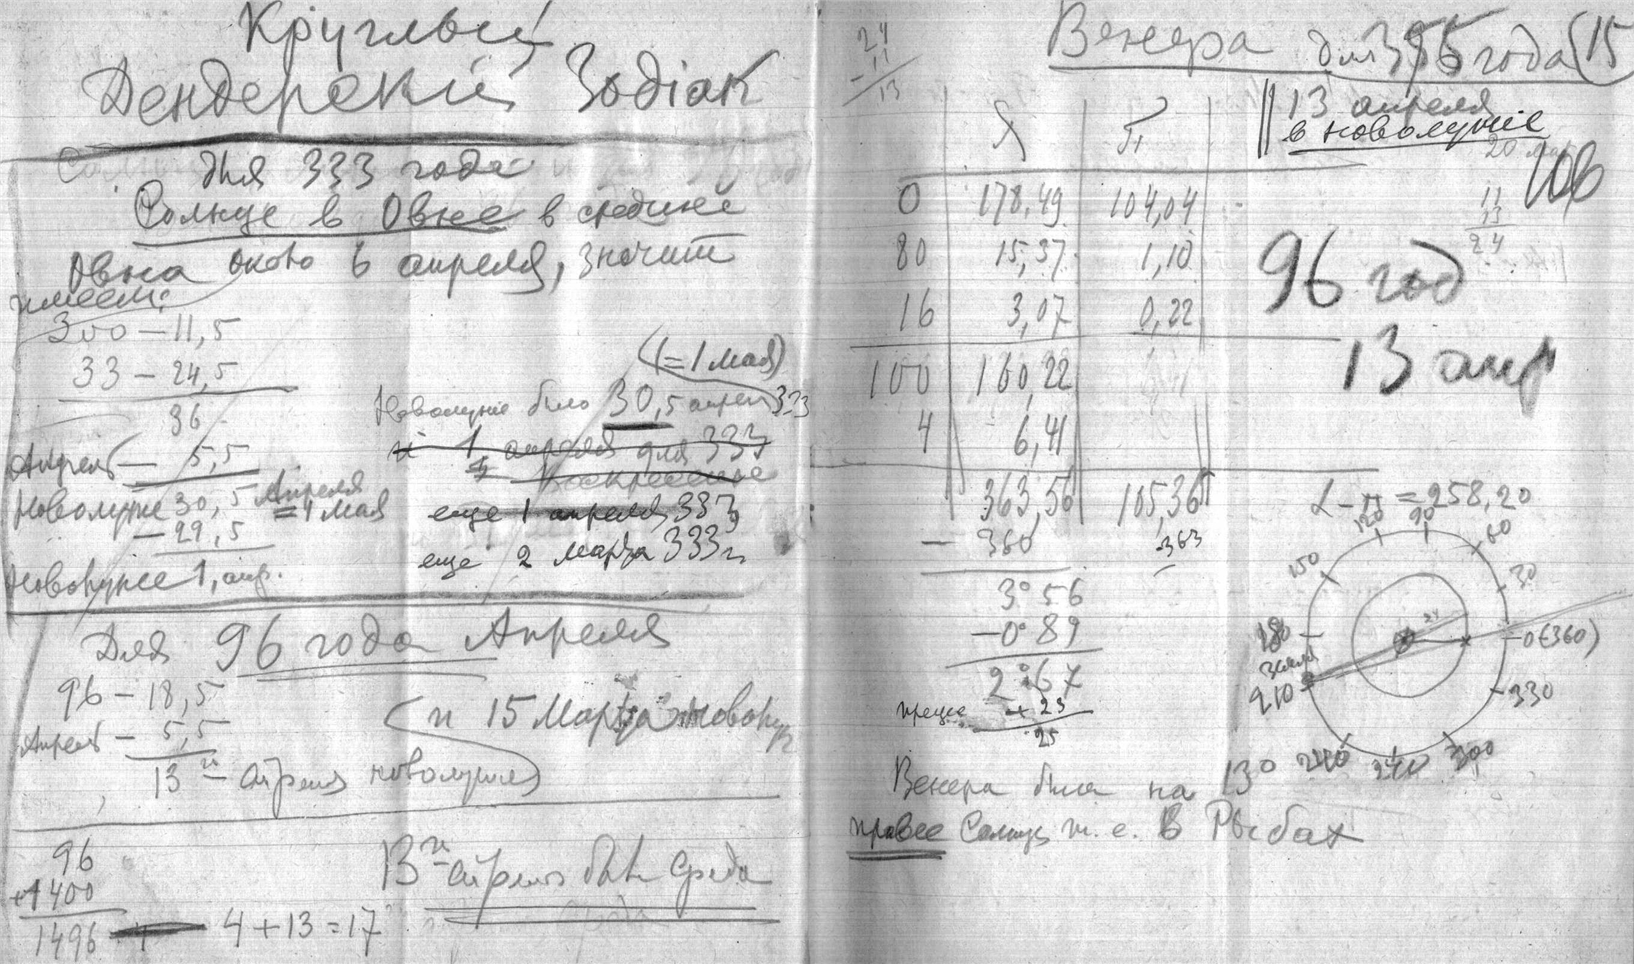 Круглый
Дендерскій Зодіак
для 333 года
Солнце в Овне в средине
Овна около 6 апреля, значит
имеем:
300 — 11,5
33 — 24,5
36
Апрель — 5,5
Новолуніе 30,5 Апреля
= 1 мая
— 29,5
Новолуніе 1, апр.
(1 = 1 мая)
Новолуніе было 30,5 апрел 333
и 1 апреля для 333
воскресенье
еще 1 апреля 333
еще 2 марта 333 г.
Для 96 года Апреля
96 — 18,5
Апрель — 5,5
13 — апреля новолуніе
(и 15 Марта Новолун
96
+1400
1496
4 + 13 = 17
13 апрель был Среда
24
- 11
13
Венера для 396 года (15
13 апреля
в новолуніе
20
11
13
24
96 год
13 апр
0 178,49 104,04
80 15,37 1,10
16 3,07 0,22
100 160,22
4 6,41
363,56 105,36
— 360
363
3° 56
— 0° 89
2° 67
+ 23
25
= 258,20
120 90 60
150 30
180 0 (360)
земля
210 330
240 300
Венера была на 13°
правее Солнца т. е. в Рыбах